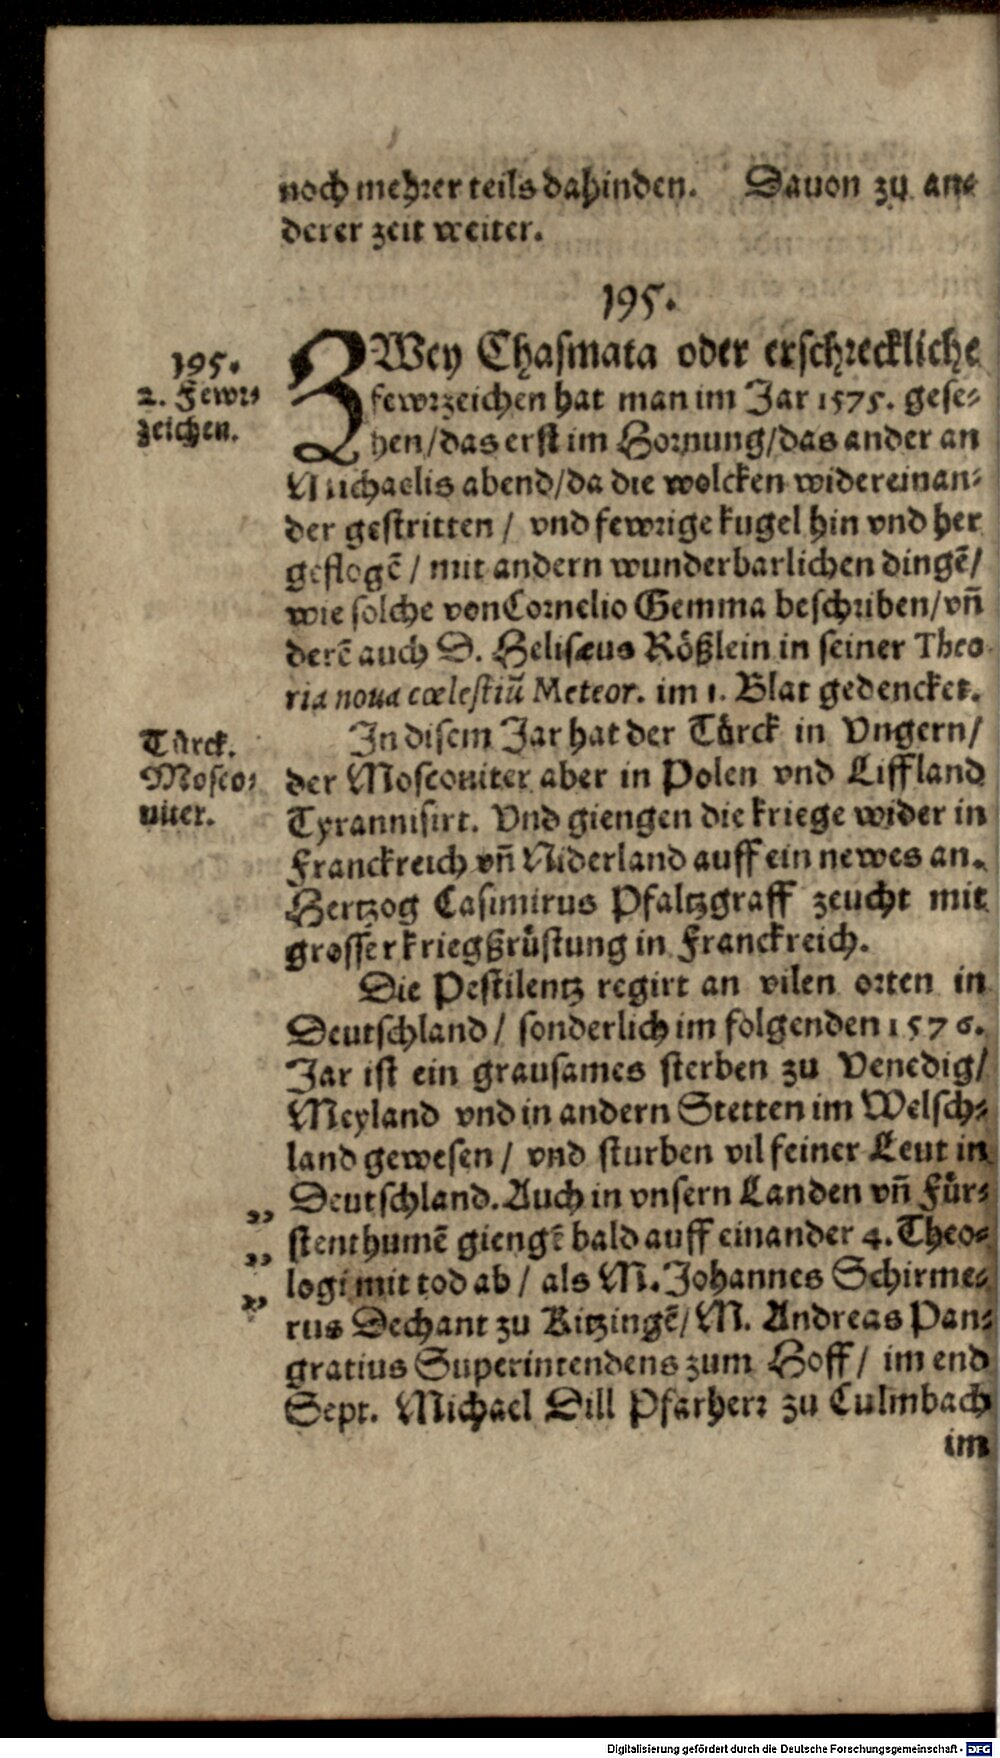 noch mehrer teils dahinden. Dauon zu an⸗
derer zeit weiter.
195.
195.
2. Fewr⸗
zeichen.
ZWey Chasmata oder erschreckliche
fewrzeichen hat man im Jar 1575. gese⸗
hen/das erst im Hornung/das ander an
Michaelis abend/da die wolcken widereinan⸗
der gestritten / vnd fewrige kugel hin vnd her
geflogẽ / mit andern wunderbarlichen dingẽ/
wie solche von Cornelio Gemma beschriben/vñ
derẽ auch D. Helisæus Rößlein in seiner Theo
ria noua cœlestiũ Meteor. im 1. Blat gedencket.
Tůrck.
Mosco⸗
uiter.
In disem Jar hat der Tůrck in Vngern/
der Moscouiter aber in Polen vnd Liffland
Tyrannisirt. Vnd giengen die kriege wider in
Franckreich vñ Niderland auff ein newes an.
Hertzog Casimirus Pfaltzgraff zeucht mit
grosser kriegßrůstung in Franckreich.
Die Pestilentz regirt an vilen orten in
Deutschland / sonderlich im folgenden 1576.
Jar ist ein grausames sterben zu Venedig/
Meyland vnd in andern Stetten im Welsch⸗
land gewesen / vnd sturben vil feiner Leut in
„ Deutschland. Auch in vnsern Landen vñ Fůr⸗
„ stenthumẽ giengẽ bald auff einander 4. Theo⸗
„ logi mit tod ab / als M. Johannes Schirme⸗
rus Dechant zu Kitzingẽ/ M. Andreas Pan⸗
gratius Superintendens zum Hoff / im end
Sept. Michael Dill Pfarherr zu Culmbach
im
Digitalisierung gefördert durch die Deutsche Forschungsgemeinschaft - DFG